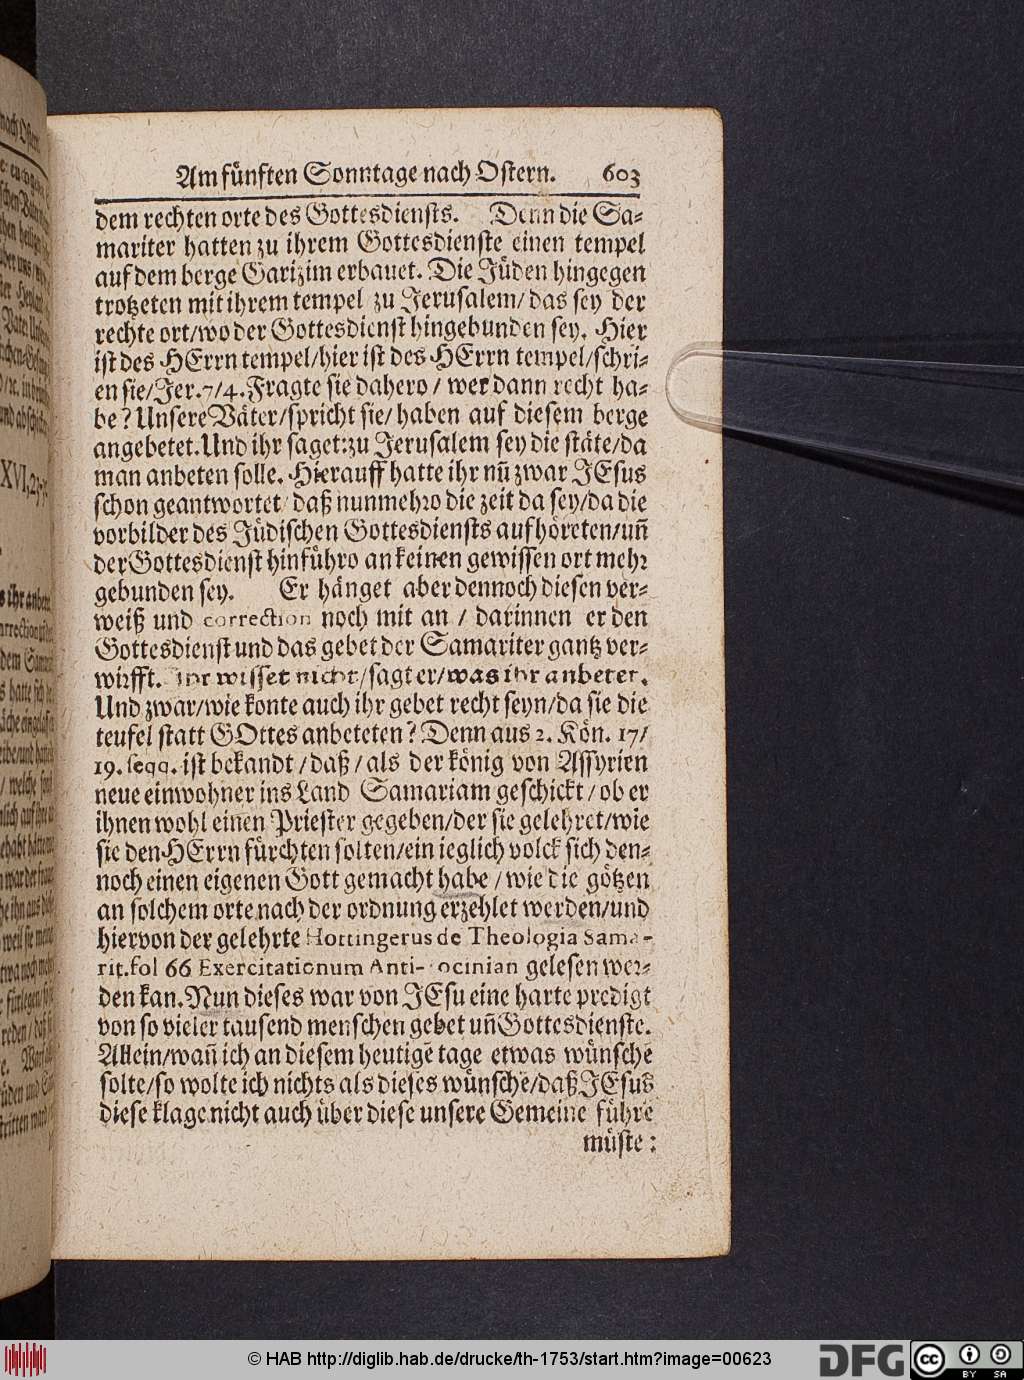 Am fünften Sonntage nach Ostern. 603
dem rechten orte des Gottesdiensts. Denn die Sa-
mariter hatten zu ihrem Gottesdienste einen tempel
auf dem berge Garizim erbauet. Die Jüden hingegen
trotzeten mit ihrem tempel zu Jerusalem/ das sey der
rechte ort/wo der Gottesdienst hingebunden sey. Hier
ist des HErrn tempel/hier ist des HErrn tempel/schri-
en sie/Jer.7/4. Fragte sie dahero/ wer dann recht ha-
be? Unsere Väter/spricht sie/ haben auf diesem berge
angebetet. Und ihr saget: zu Jerusalem sey die stäte/da
man anbeten solle. Hierauff hatte ihr nũ zwar JEsus
schon geantwortet/ daß nunmehro die zeit da sey/da die
vorbilder des Jüdischen Gottesdiensts aufhöreten/uñ
der Gottesdienst hinführo an keinen gewissen ort mehr
gebunden sey. Er hänget aber dennoch diesen ver-
weiß und correction noch mit an / darinnen er den
Gottesdienst und das gebet der Samariter gantz ver-
wirfft. Ihr wisset nicht/sagt er/was ihr anbetet.
Und zwar/wie konte auch ihr gebet recht seyn/da sie die
teufel statt GOttes anbeteten? Denn aus 2. Kön. 17/
19. seqq. ist bekandt / daß / als der könig von Assyrien
neue einwohner ins Land Samariam geschickt / ob er
ihnen wohl einen Priester gegeben/der sie gelehret/wie
sie den HErrn fürchten solten/ein ieglich volck sich den-
noch einen eigenen Gott gemacht habe / wie die götzen
an solchem orte nach der ordnung erzehlet werden/und
hiervon der gelehrte Hottingerus de Theologia Sama-
rit. fol 66 Exercitationum Anti- ocinian gelesen wer-
den kan. Nun dieses war von JEsu eine harte predigt
von so vieler tausend menschen gebet uñ Gottesdienste.
Allein/wañ ich an diesem heutigẽ tage etwas wünschẽ
solte/so wolte ich nichts als dieses wünschẽ/daß JEsus
diese klage nicht auch über diese unsere Gemeine führẽ
müste:
© HAB http://diglib.hab.de/drucke/th-1753/start.htm?image=00623
DFG
cc
BY SA